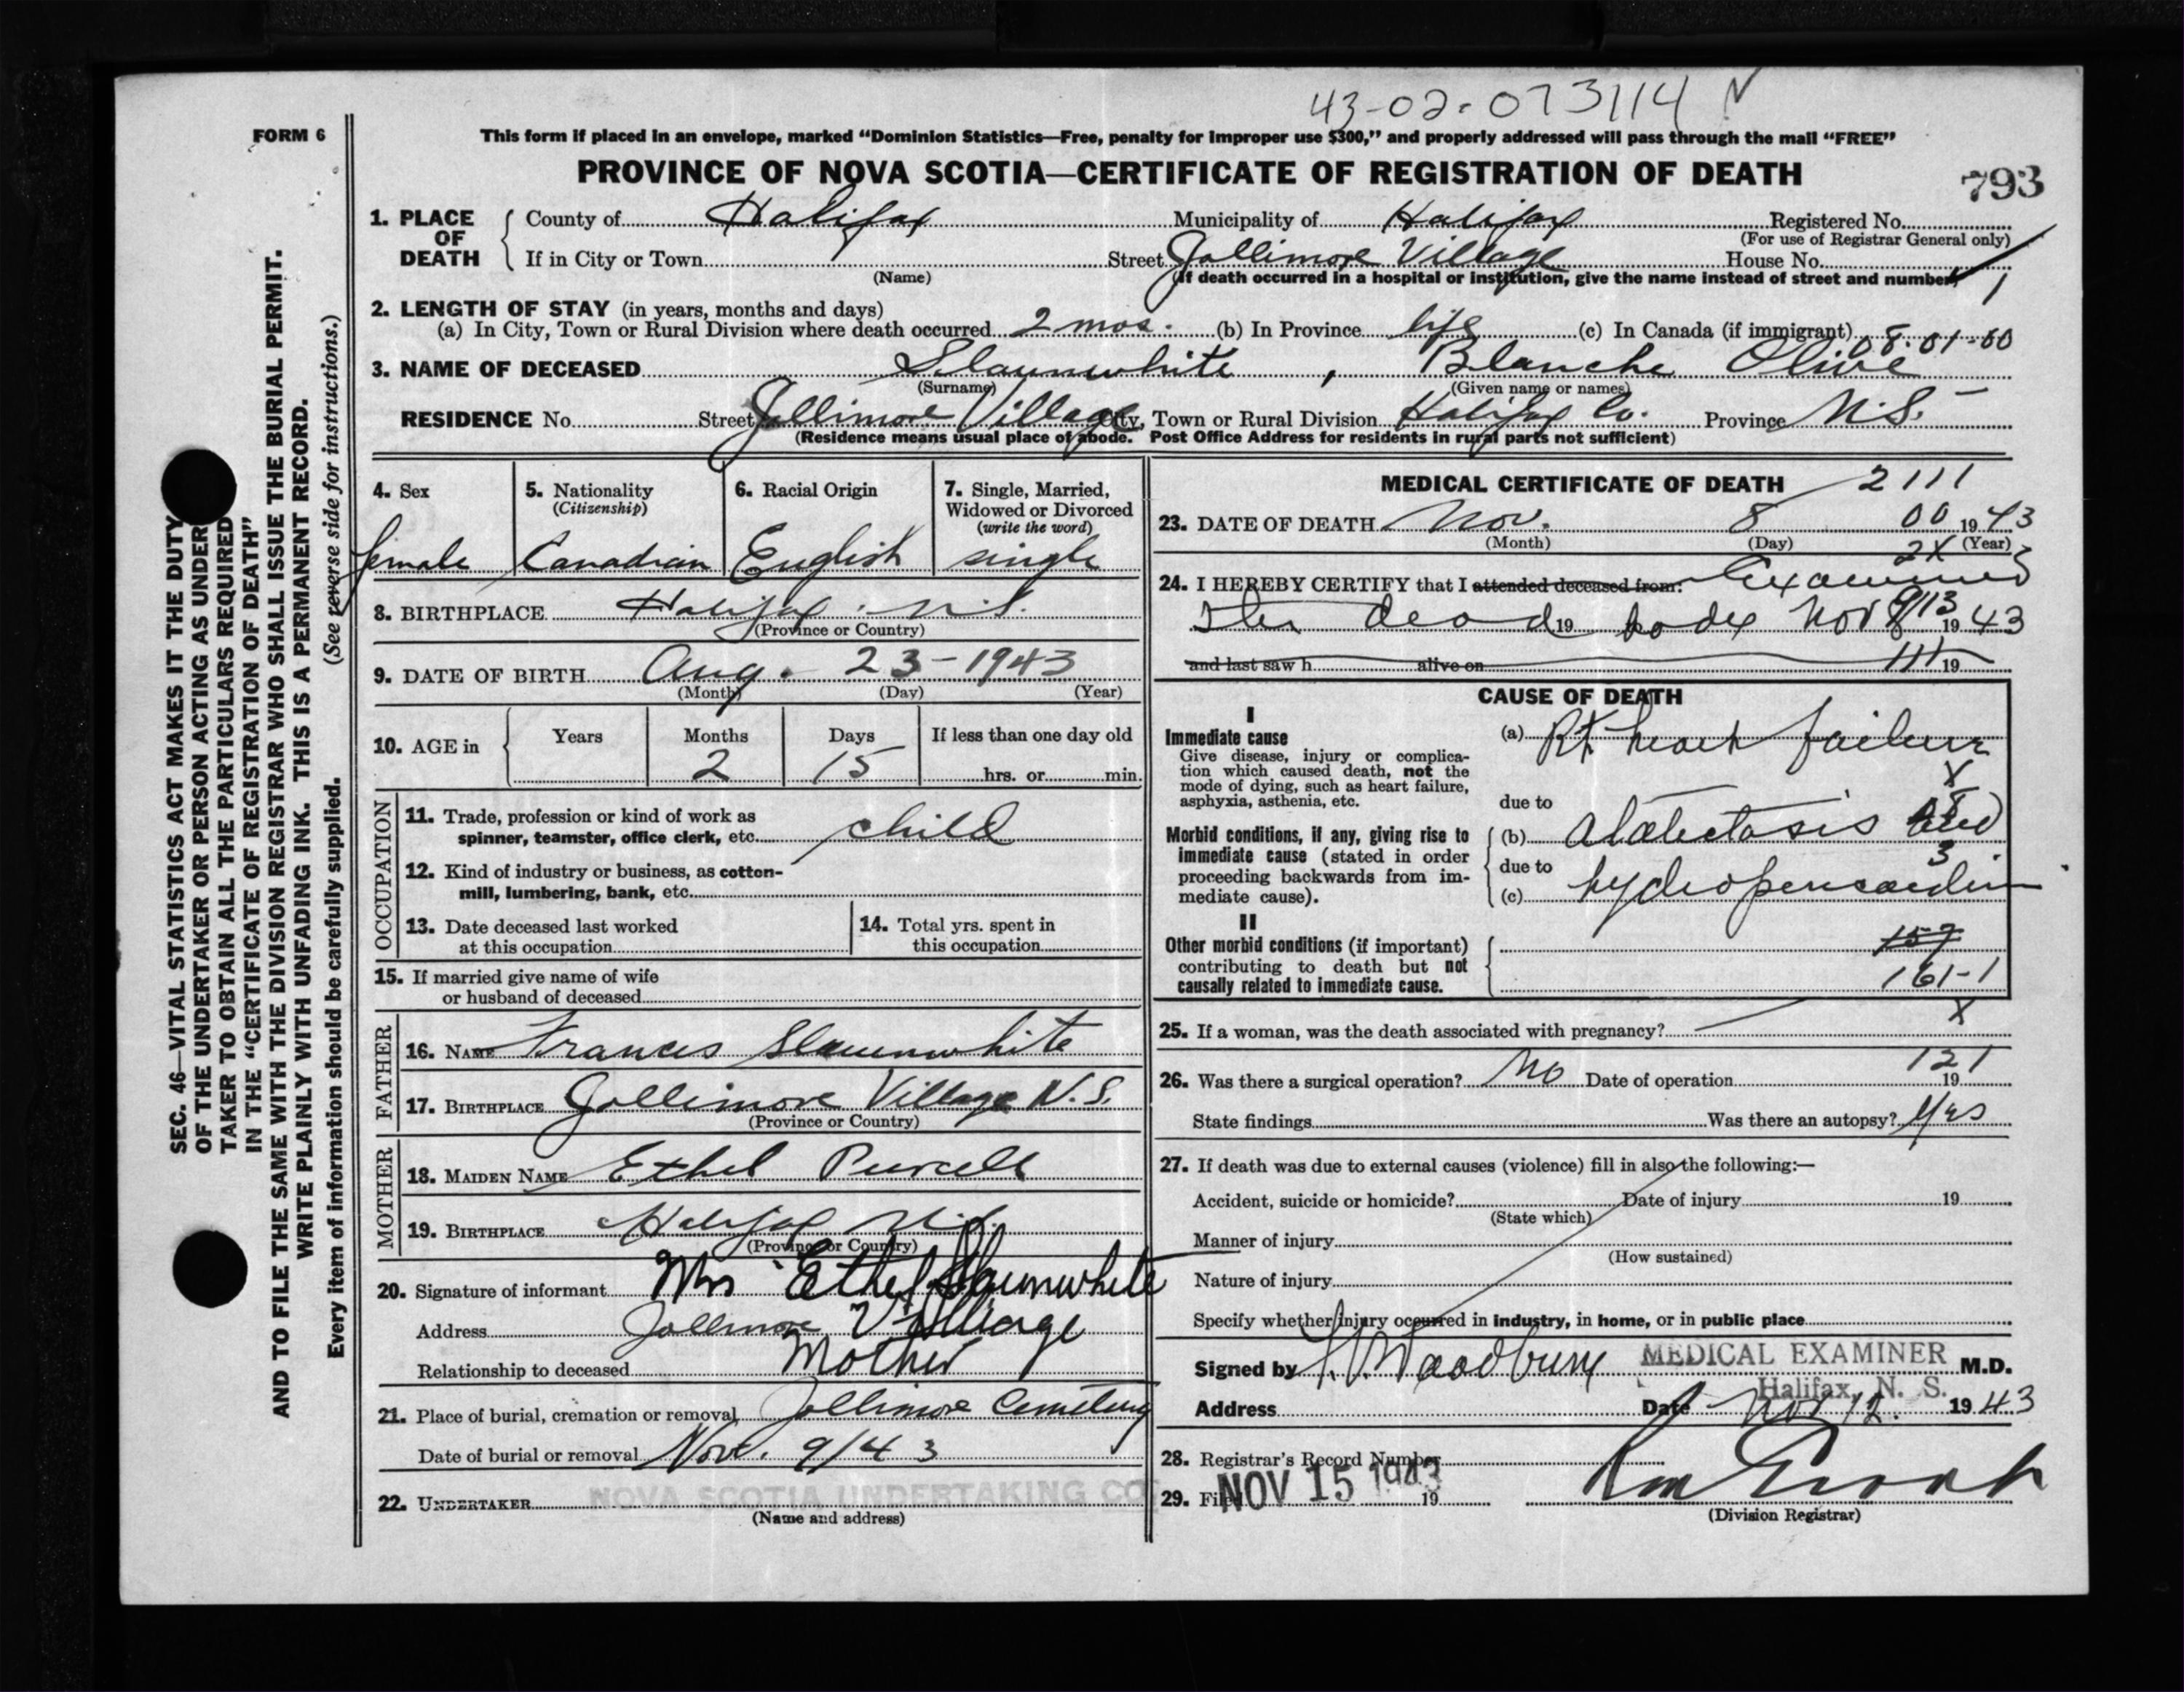 43-02-073114
FORM 6
This form if placed in an envelope, marked “Dominion Statistics—Free, penalty for improper use $300,” and properly addressed will pass through the mail “FREE”
PROVINCE OF NOVA SCOTIA—CERTIFICATE OF REGISTRATION OF DEATH
793
1. PLACE OF DEATH County of Halifax Municipality of Halifax Registered No.
(For use of Registrar General only)
If in City or Town Street Jollimore Village House No.
(Name) (If death occurred in a hospital or institution, give the name instead of street and number) 1
2. LENGTH OF STAY (in years, months and days)
(a) In City, Town or Rural Division where death occurred 2 mos. (b) In Province life (c) In Canada (if immigrant) 08-01-00
3. NAME OF DECEASED Slaunwhite, Blanche Olive
(Surname) (Given name or names)
RESIDENCE No. Street Jollimore Village City, Town or Rural Division Halifax Co. Province N.S.
(Residence means usual place of abode. Post Office Address for residents in rural parts not sufficient)
4. Sex
female
5. Nationality
(Citizenship)
Canadian
6. Racial Origin
English
7. Single, Married,
Widowed or Divorced
(write the word)
single
8. BIRTHPLACE Halifax, N.S.
(Province or Country)
9. DATE OF BIRTH Aug. 23-1943
(Month) (Day) (Year)
10. AGE in Years Months Days If less than one day old
2 15 hrs. or min.
OCCUPATION
11. Trade, profession or kind of work as
spinner, teamster, office clerk, etc. child
12. Kind of industry or business, as cotton-
mill, lumbering, bank, etc.
13. Date deceased last worked
at this occupation
14. Total yrs. spent in
this occupation
15. If married give name of wife
or husband of deceased
FATHER
16. NAME Francis Slaunwhite
17. BIRTHPLACE Jollimore Village N.S.
(Province or Country)
MOTHER
18. MAIDEN NAME Ethel Purcell
19. BIRTHPLACE Halifax N.S.
(Province or Country)
20. Signature of informant Mrs Ethel Slaunwhite
Address Jollimore Village
Relationship to deceased Mother
21. Place of burial, cremation or removal Jollimore Cemetery
Date of burial or removal Nov. 9/43
22. UNDERTAKER NOVA SCOTIA UNDERTAKING CO.
(Name and address)
MEDICAL CERTIFICATE OF DEATH 2111
23. DATE OF DEATH Nov. 8 00 1943
(Month) (Day) (Year)
2X
24. I HEREBY CERTIFY that I attended deceased from: Examined
the dead 19 body Nov 9/13 1943
and last saw h alive on 111 19
CAUSE OF DEATH
I
Immediate cause
Give disease, injury or complica-
tion which caused death, not the
mode of dying, such as heart failure,
asphyxia, asthenia, etc.
(a) Rt heart failure
X
due to
Morbid conditions, if any, giving rise to
immediate cause (stated in order
proceeding backwards from im-
mediate cause).
(b) Atelectasis and
3
due to
(c) hydropericardium
II
Other morbid conditions (if important)
contributing to death but not
causally related to immediate cause.
157
161-1
25. If a woman, was the death associated with pregnancy? X
26. Was there a surgical operation? No Date of operation 121 19
State findings Was there an autopsy? Yes
27. If death was due to external causes (violence) fill in also the following:—
Accident, suicide or homicide? Date of injury 19
(State which)
Manner of injury
(How sustained)
Nature of injury
Specify whether injury occurred in industry, in home, or in public place
Signed by Woodbury MEDICAL EXAMINER M.D.
Halifax, N. S.
Address Date Nov 12. 1943
28. Registrar's Record Number
29. Filed NOV 15 1943 19
(Division Registrar)
SEC. 46—VITAL STATISTICS ACT MAKES IT THE DUTY
OF THE UNDERTAKER OR PERSON ACTING AS UNDER
TAKER TO OBTAIN ALL THE PARTICULARS REQUIRED
IN THE “CERTIFICATE OF REGISTRATION OF DEATH”
AND TO FILE THE SAME WITH THE DIVISION REGISTRAR WHO SHALL ISSUE THE BURIAL PERMIT.
WRITE PLAINLY WITH UNFADING INK. THIS IS A PERMANENT RECORD.
Every item of information should be carefully supplied. (See reverse side for instructions.)